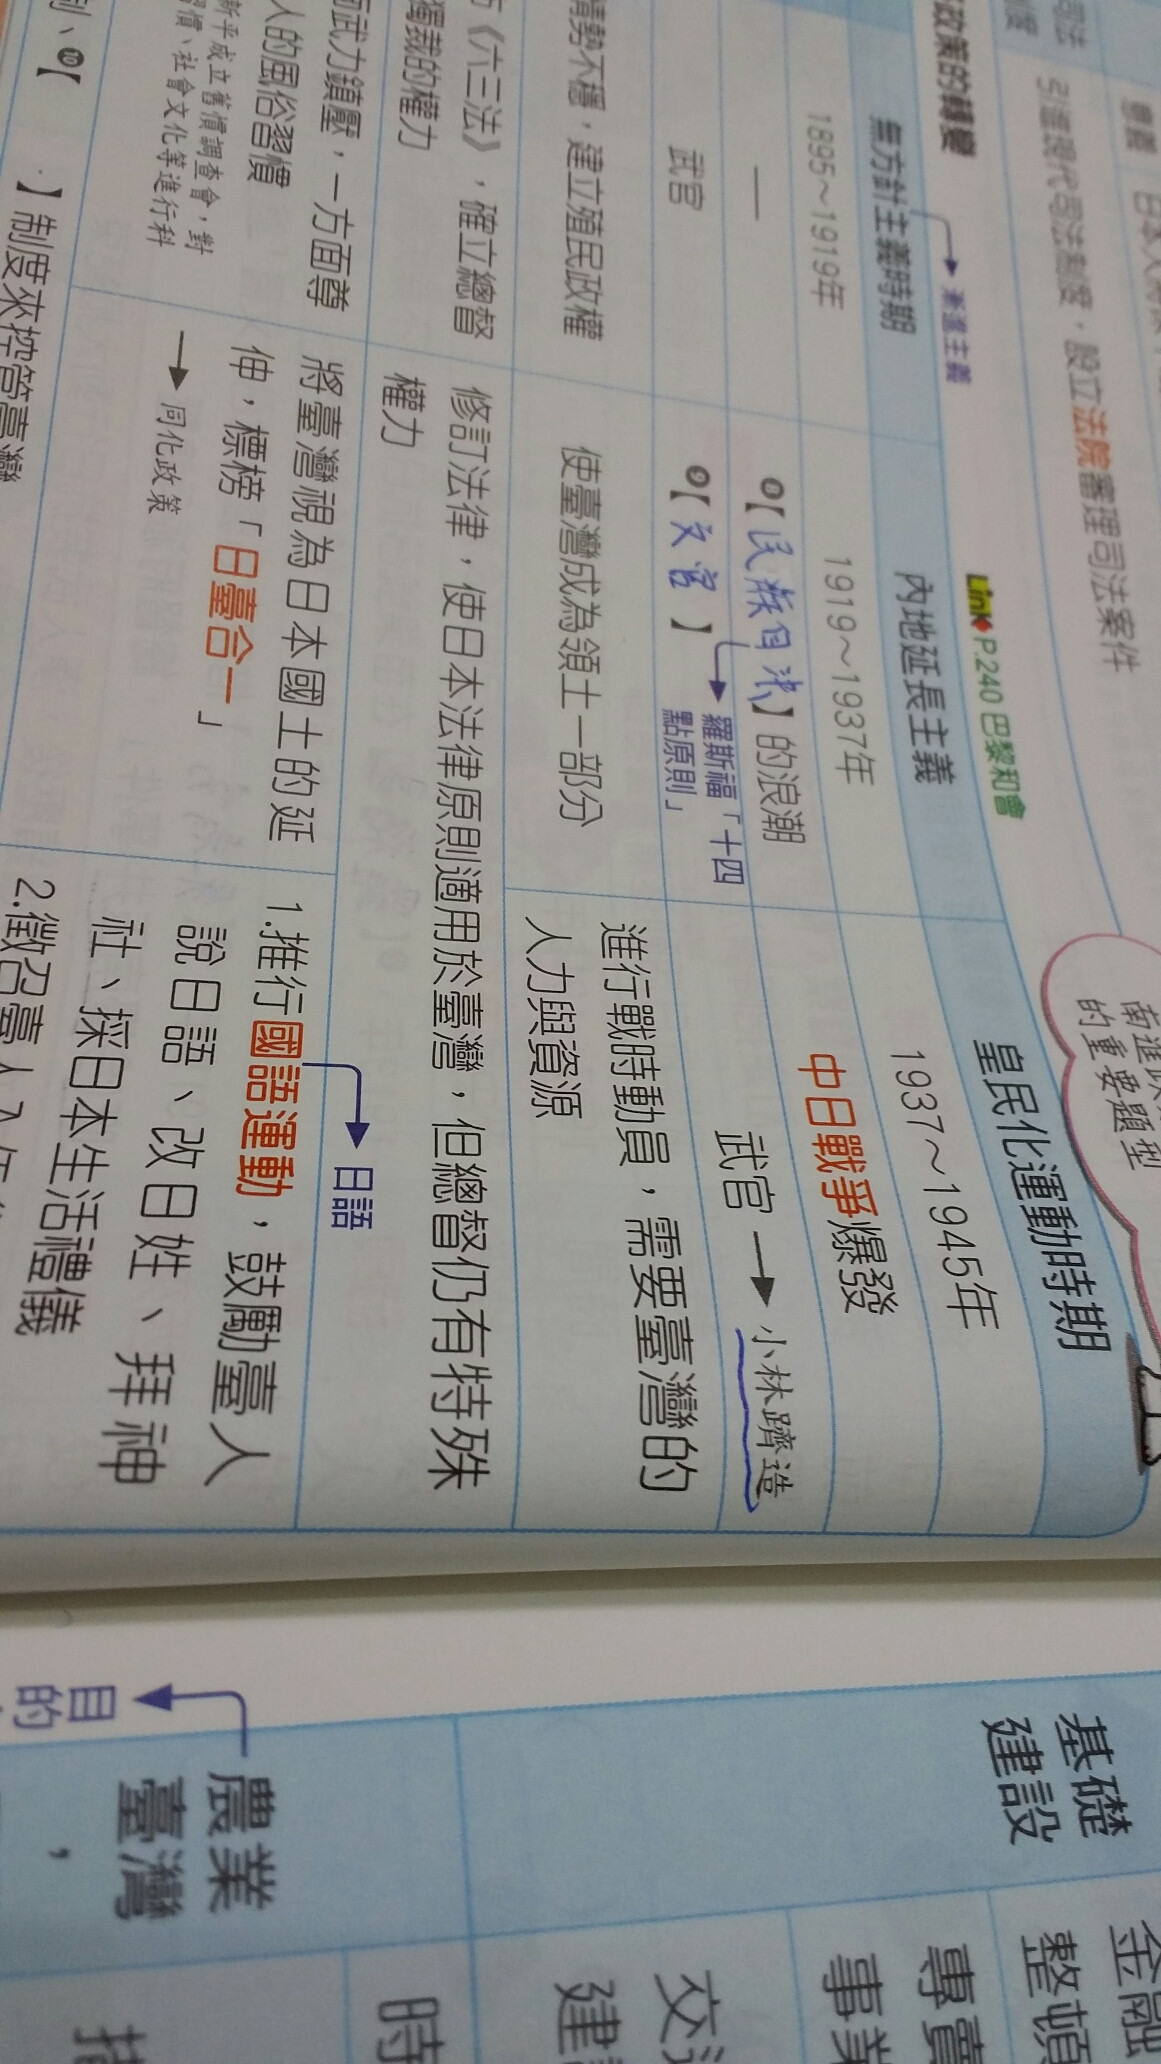 司法
引進現代司法制度，設立法院審理司法案件
政策的轉變
漸進主義
Link P.240 巴黎和會
南進政
的重要題型
無方針主義時期
內地延長主義
皇民化運動時期
1895～1919年
1919～1937年
1937～1945年
—
❽【民族自決】的浪潮
中日戰爭爆發
武官
❾【文官】
羅斯福「十四
點原則」
武官
小林躋造
情勢不穩，建立殖民政權
使臺灣成為領土一部分
進行戰時動員，需要臺灣的
人力與資源
《六三法》，確立總督
獨裁的權力
修訂法律，使日本法律原則適用於臺灣，但總督仍有特殊
權力
武力鎮壓，一方面尊
人的風俗習慣
新平成立舊慣調查會，對
慣、社會文化等進行科
將臺灣視為日本國土的延
伸，標榜「日臺合一」
同化政策
日語
1.推行國語運動，鼓勵臺人
說日語、改日姓、拜神
社、採日本生活禮儀
2.徵召臺人入
制、❿【 】制度來控管臺灣
基礎
建設
金融
整頓
專賣
事業
交
建
目的
農業
臺灣
，
時